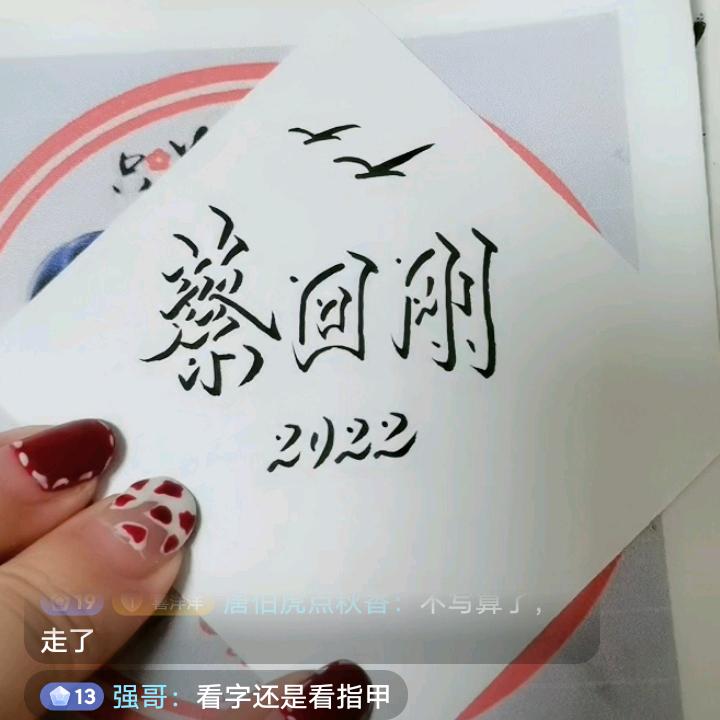 蔡回
2022
19 喜洋洋 唐伯虎点秋香：不写算了，
走了
13 强哥：看字还是看指甲